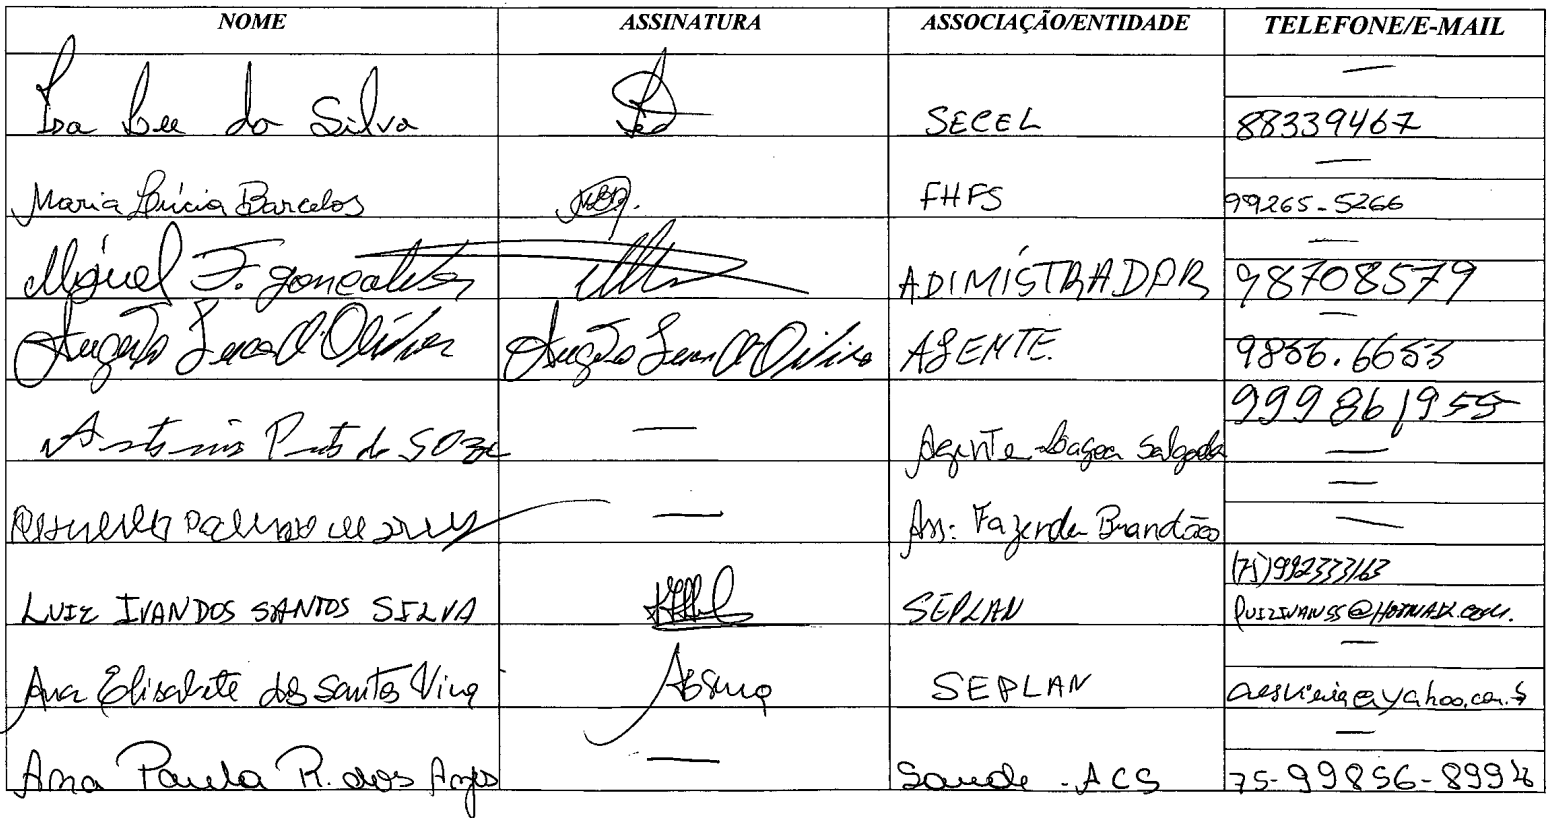 NOME ASSINATURA ASSOCIAÇÃO/ENTIDADE TELEFONE/E-MAIL
—
Isa Lee da Silva SECEL 88339467
—
Maria Lúcia Barcelos FHFS 99265-5266
—
Miguel F. Goncalves ADIMÍSTRADOR 98708579
—
Augusto D'Oliveira Augusto D'Oliveira AGENTE. 9856.6653
999861955
Antonio Pinto de SOZA — Agente Lagoa Salgada —
—
— Ass: Fazenda Brandão —
(75)992333163
LUIZ IVAN DOS SANTOS SILVA SEPLAN LUIZIVANSS@HOTMAIL.COM.
—
Ana Elisabete dos Santos SEPLAN aesvieira@yahoo.com.
—
Ana Paula R. dos Anjos — Saude - ACS 75-99856-8994